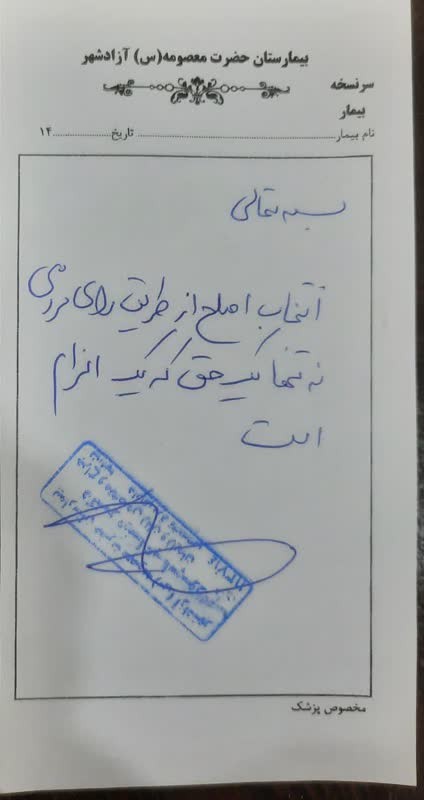 بیمارستان حضرت معصومه(س) آزادشهر
سرنسخه
بیمار
نام بیمار............ تاریخ............۱۴
بسمه تعالی
انتخاب اصلح از طریق رای مردمی
نه تنها یک حق که یک الزام
است
مخصوص پزشک